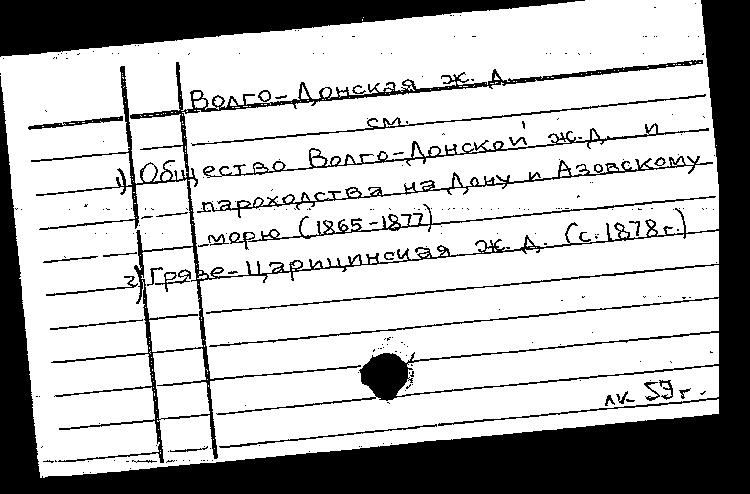 Волго-Донская ж. д.
см.
1) Общество Волго-Донской ж.д. и
пароходства на Дону и Азовскому
морю (1865-1877)
2) Грязе-Царицинская ж. д. (с. 1878 г.)
лк 59 г.